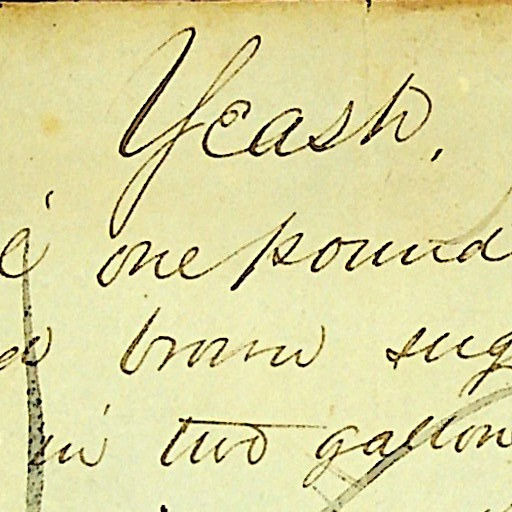 Yeast,
one pound
brown sug
in two gallon